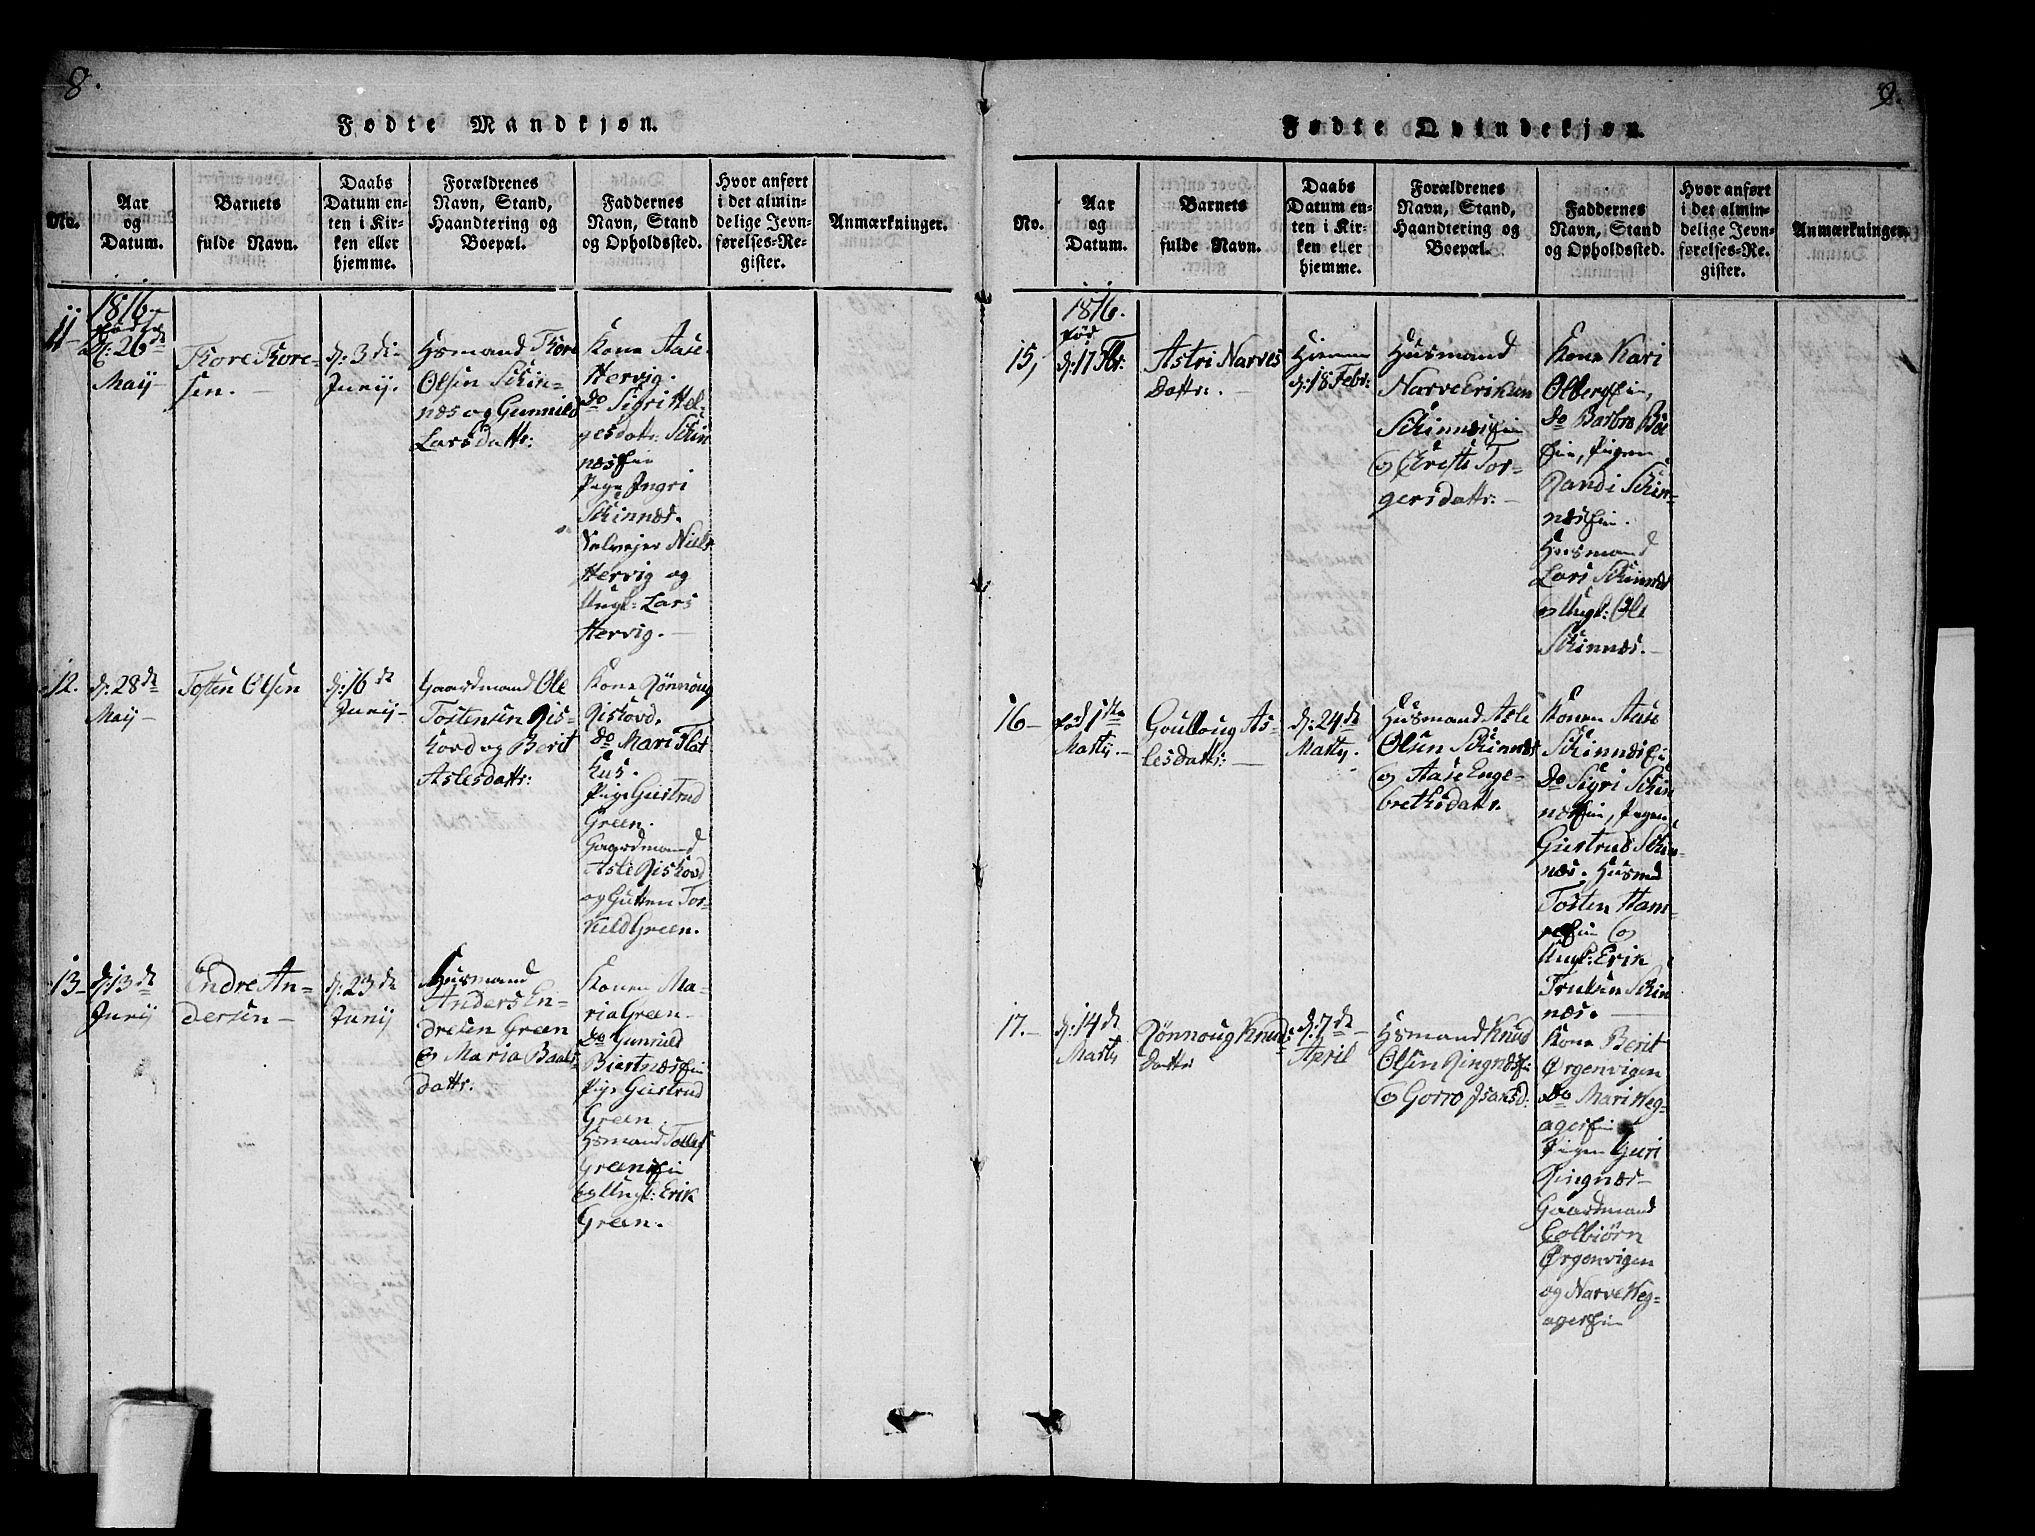 8.
Fødte Mandkjøn.
No.
Aar
og
Datum.
Barnets
fulde Navn.
Daabs
Datum en-
ten i Kir-
ken eller
hjemme.
Forældrenes
Navn, Stand,
Haandtering og
Boepæl.
Faddernes
Navn, Stand
og Opholdssted.
Hvor anført
i det almin-
delige Jevn-
førelses-Re-
gister.
Anmærkninger.
11-
1816.
født
d: 26de
Maij
Tore Tore-
sen.
d: 3di
Junij.
Hsmand Tore
Olsen Skin-
næs og Gunnild
Larsdattr:
Kone Aase
Hervig.
do Sigri Hel-
gesdattr: Skin
næsein
Pige Ingri
Skinnæs.
Selvejer Niels
Hervig og
Ungk: Lars
Hervig.
12.
d: 28de
Maij
Tosten Olsen
d: 16de
Junij
Gaardmand Ole
Tostensen Ris-
kovd og Berit
Aslesdattr:
Kone Rønnoug
Riskovd.
do Mari Flat
hus.
Pige Guistrud
Green.
Gaardmand
Asle Riskovd
og Gutten Tor-
kild Green.
13-
d: 13de
Junij
Endre An-
dersen
d: 23de
Junij
Husmand
Anders En-
dresen Green
og Maria Baals
dattr:
Konen Ma-
ria Green
do Gunnild
Biertnæsein
Pige Guistrud
Green.
Hsmand Tollef
Greensein
og Ungk: Erik
Green.
9.
Fødte Qvindekjøn.
No.
Aar
og
Datum.
Barnets
fulde Navn.
Daabs
Datum en-
ten i Kir-
ken eller
hjemme.
Forældrenes
Navn, Stand,
Haandtering og
Boepæl.
Faddernes
Navn, Stand
og Opholdssted.
Hvor anført
i det almin-
delige Jevn-
førelses-Re-
gister.
Anmærkninger.
15,
1816.
fød
d: 17 Fbr.
Astri Narves
Dattr.
Hjemme
d: 18 Febr:
Husmand
Narve Eriksen
Skinnæsein
og Christi Tor-
gersdattr:
Kone Kari
Olbergein,
do Barbro Bøe
ein, Pigen
Randi Skin-
næsein.
Husmand
Lars Skinnæs
og Ungk: Ole
Skinnæs.
16-
fød 1ste
Martij.
Goulloug As-
lesdattr:
d: 24de
Martij.
Husmand Asle
Olsen Skinnæs
og Aase Enge-
brethsdattr.
Konen Aase
Skinnæsei
do Sigri Skin
næsein, Pigen
Guistrud Skin-
næs, Husmd
Tosten Ham-
ein og
Ungk: Erik
Trulsen Skin
næs.
17.
d: 14de
Martij
Rønnoug Knuds
Dattr
d: 7de
April
Hsmand Knud
Olsen Ringnæsei
og Gorro Isaksd:
Kone Berit
Ørgenvigen
do Mari Heg-
agerein
Pigen Guri
Ringnæs
Gaardmand
Colbiørn
Ørgenvigen
og Narve Heg-
agerein